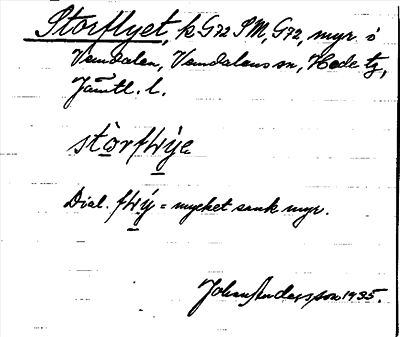 Storflyet, k G72 SM, G72, myr i
Vemdalen, Vemdalens sn, Hede tg,
Jämtl. l.
stòrfɫýe
Dial. fɫý = mycket sank myr.
Johan Andersson 1935.